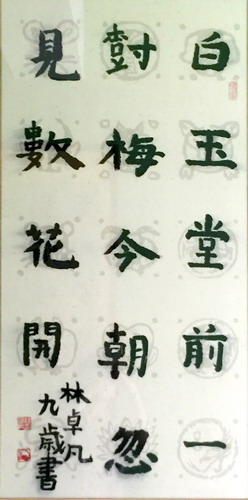 白玉堂前一
樹梅今朝忽
見數花開
林卓凡
九歲書